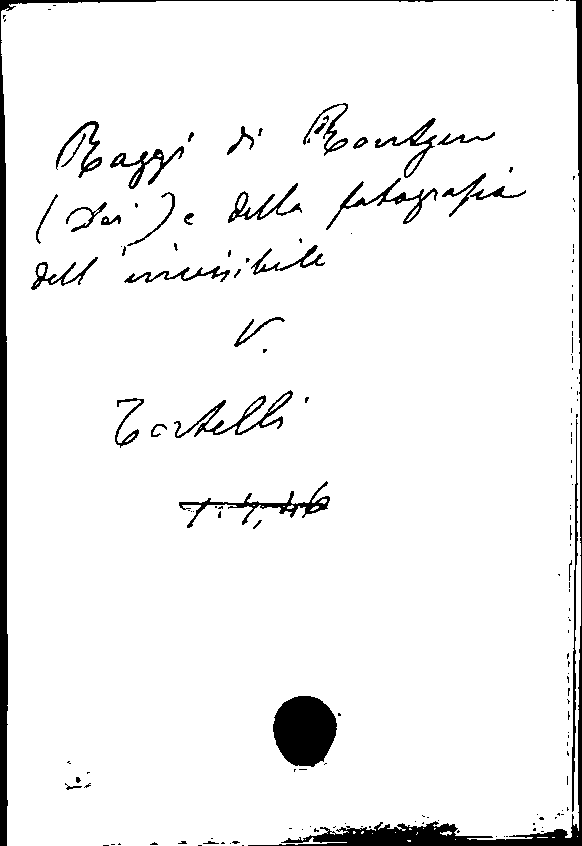 Raggi di Röntgen
(Dei) e della fotografia
dell'invisibile
V.
Tortelli
1.4.46